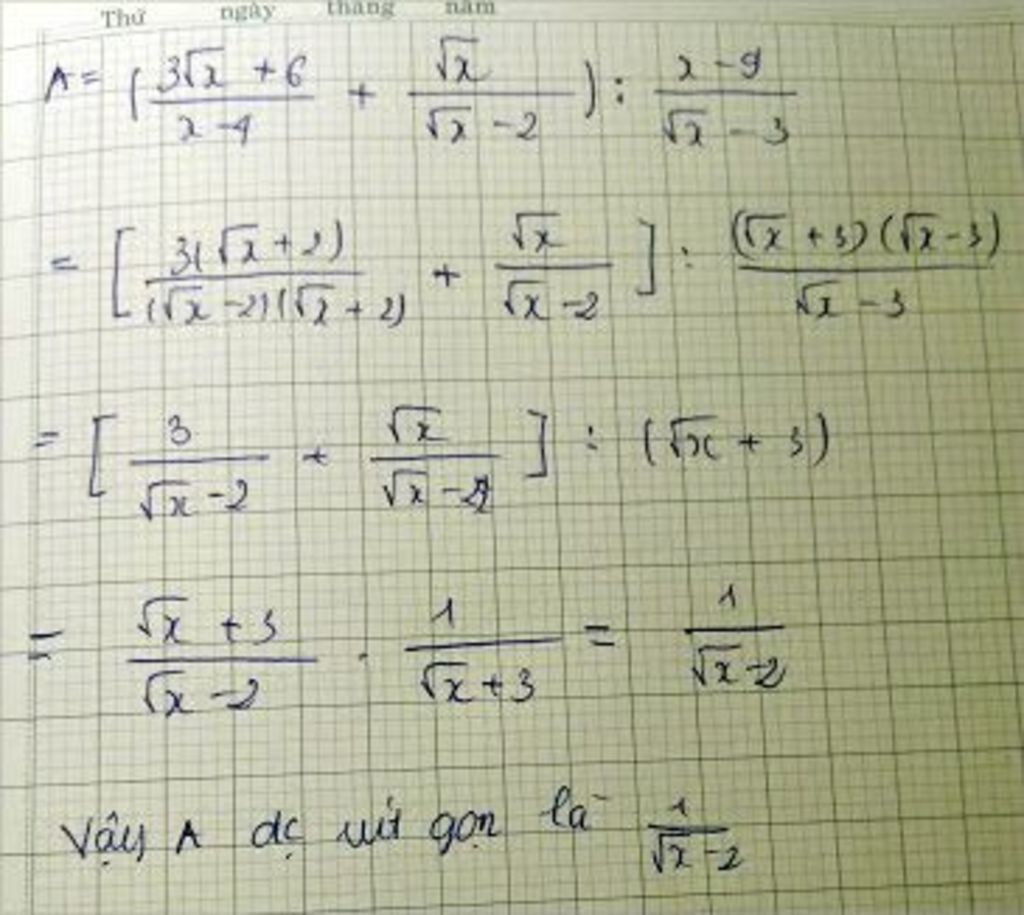 Thứ ngày tháng năm
A = (\frac{3\sqrt{x} + 6}{x - 4} + \frac{\sqrt{x}}{\sqrt{x} - 2}) : \frac{x - 9}{\sqrt{x} - 3}
= [\frac{3(\sqrt{x} + 2)}{(\sqrt{x} - 2)(\sqrt{x} + 2)} + \frac{\sqrt{x}}{\sqrt{x} - 2}] : \frac{(\sqrt{x} + 3)(\sqrt{x} - 3)}{\sqrt{x} - 3}
= [\frac{3}{\sqrt{x} - 2} + \frac{\sqrt{x}}{\sqrt{x} - 2}] : (\sqrt{x} + 3)
= \frac{\sqrt{x} + 3}{\sqrt{x} - 2} . \frac{1}{\sqrt{x} + 3} = \frac{1}{\sqrt{x} - 2}
Vậy A đc rút gọn là \frac{1}{\sqrt{x} - 2}